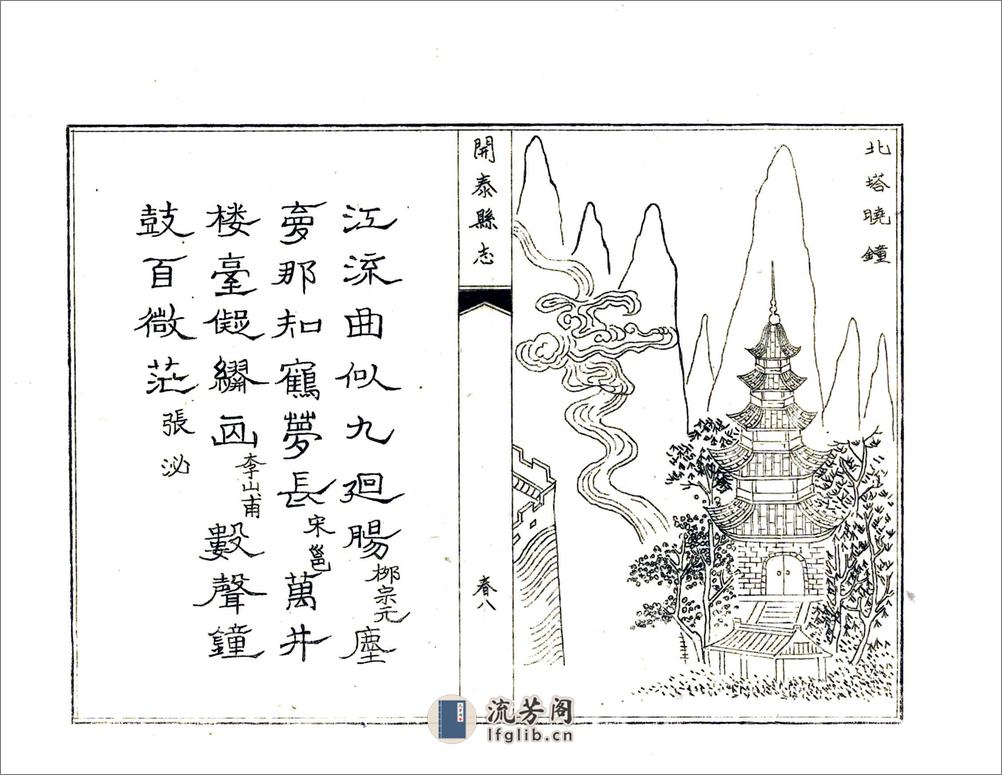 北塔曉鐘
開泰縣志
卷八
江流曲似九迴腸柳宗元 塵
夢那知鶴夢長宋邕 萬井
楼臺儗繡画李山甫 數聲鐘
鼓自微茫張泌
流芳阁
lfglib.cn